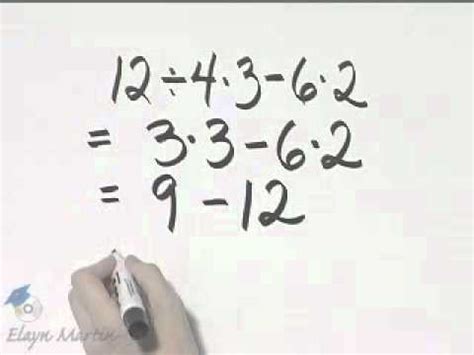 12÷4·3-6·2
= 3·3-6·2
= 9-12
Elayn Martin